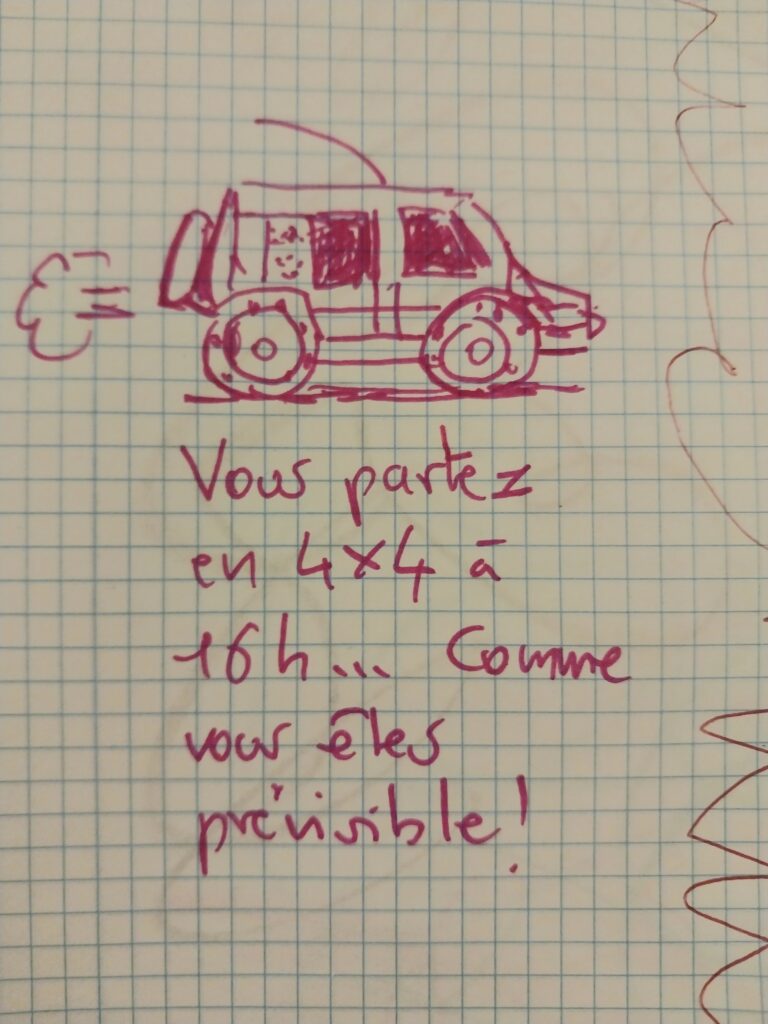 Vous partez
en 4x4 à
16h... Comme
vous êtes
prévisible!